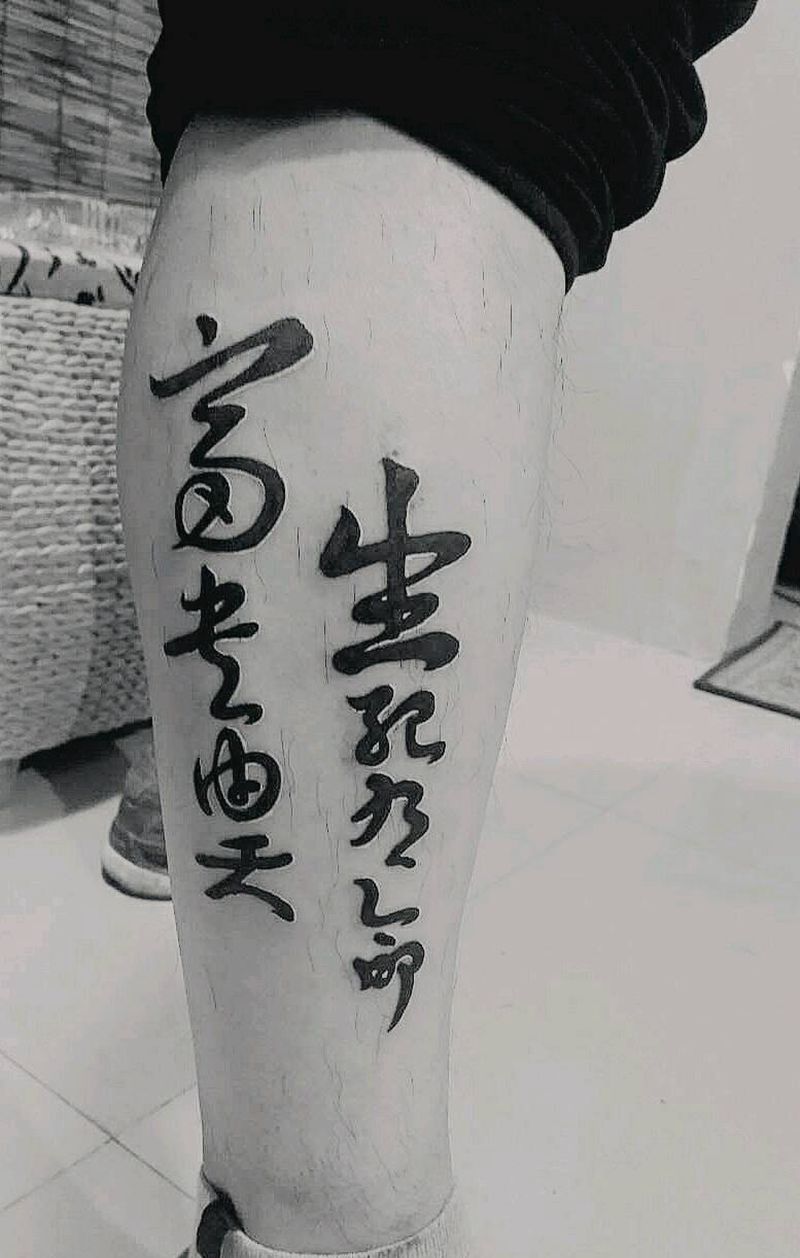 生死有命
富贵由天